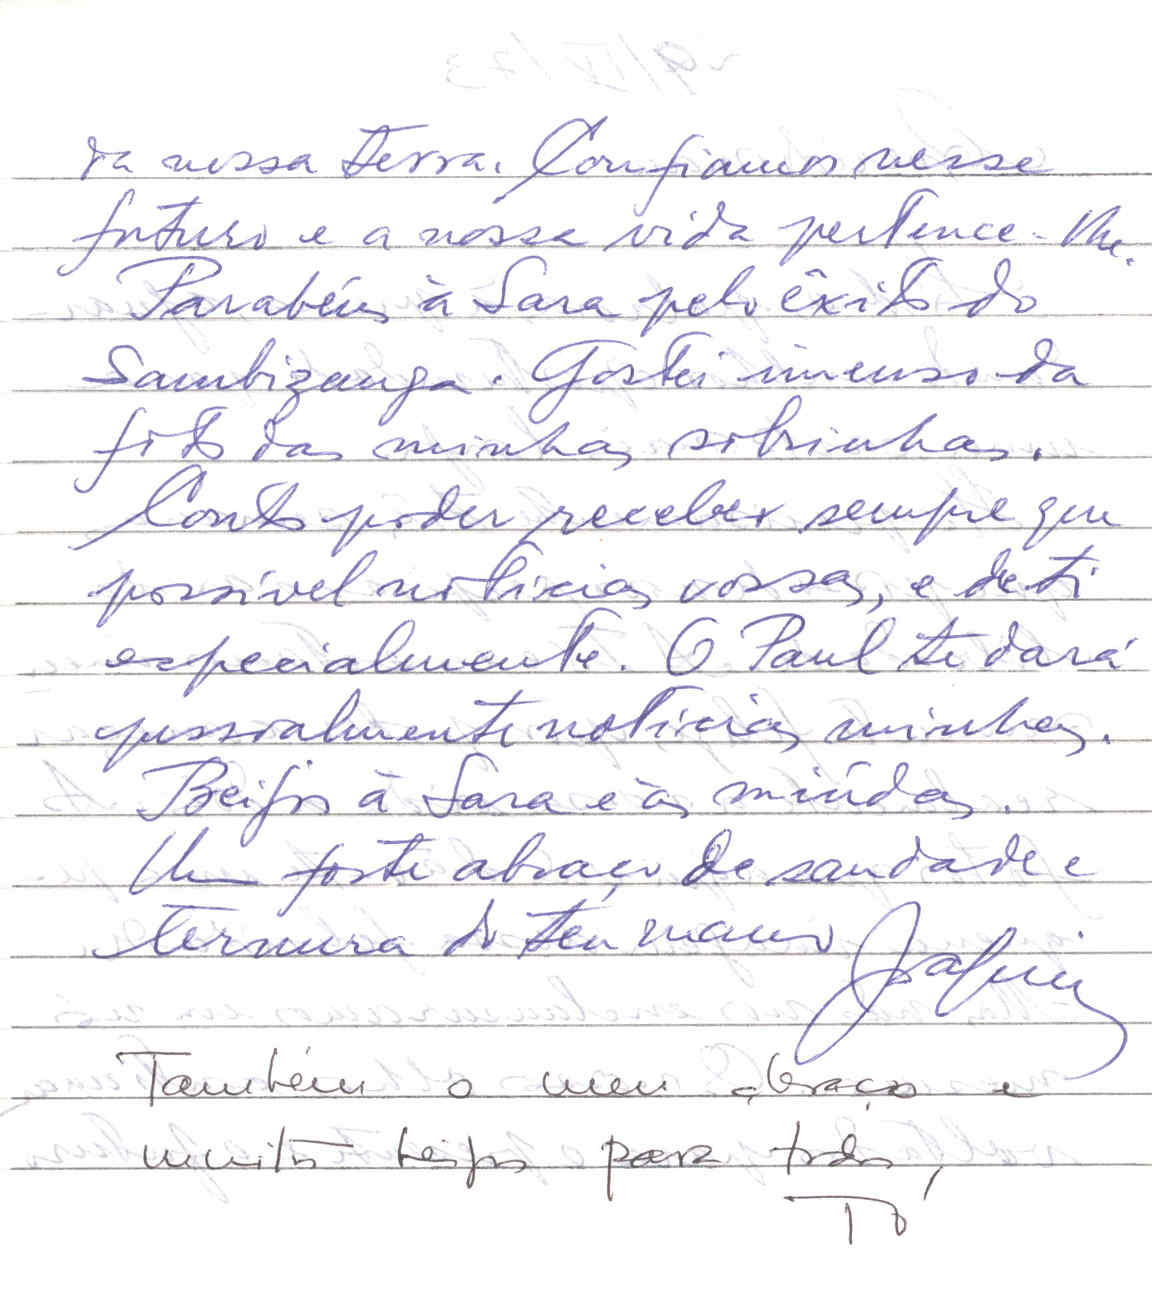 da nossa terra. Confiamos nesse
futuro e a nossa vida pertence-lhe.
Parabéns à Sara pelo êxito do
Sambizanga. Gostei imenso da
foto das minhas sobrinhas.
Conto poder receber sempre que
possível notícias vossas, e de ti
especialmente. O Paul te dará
pessoalmente notícias minhas.
Beijos à Sara e às miúdas.
Um forte abraço de saudade e
ternura do teu mano
Também o meu abraço e
muitos beijos para todos,
Tó